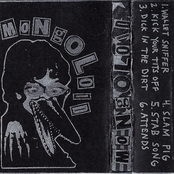 MONGOLOID
MONGOLOID
1. WALLET SNIFFER
2. KICK YOUR TITS OFF
3. DICK IN THE DIRT
4. SCAM PIG
5. STAB SONG
6. ATTENDS